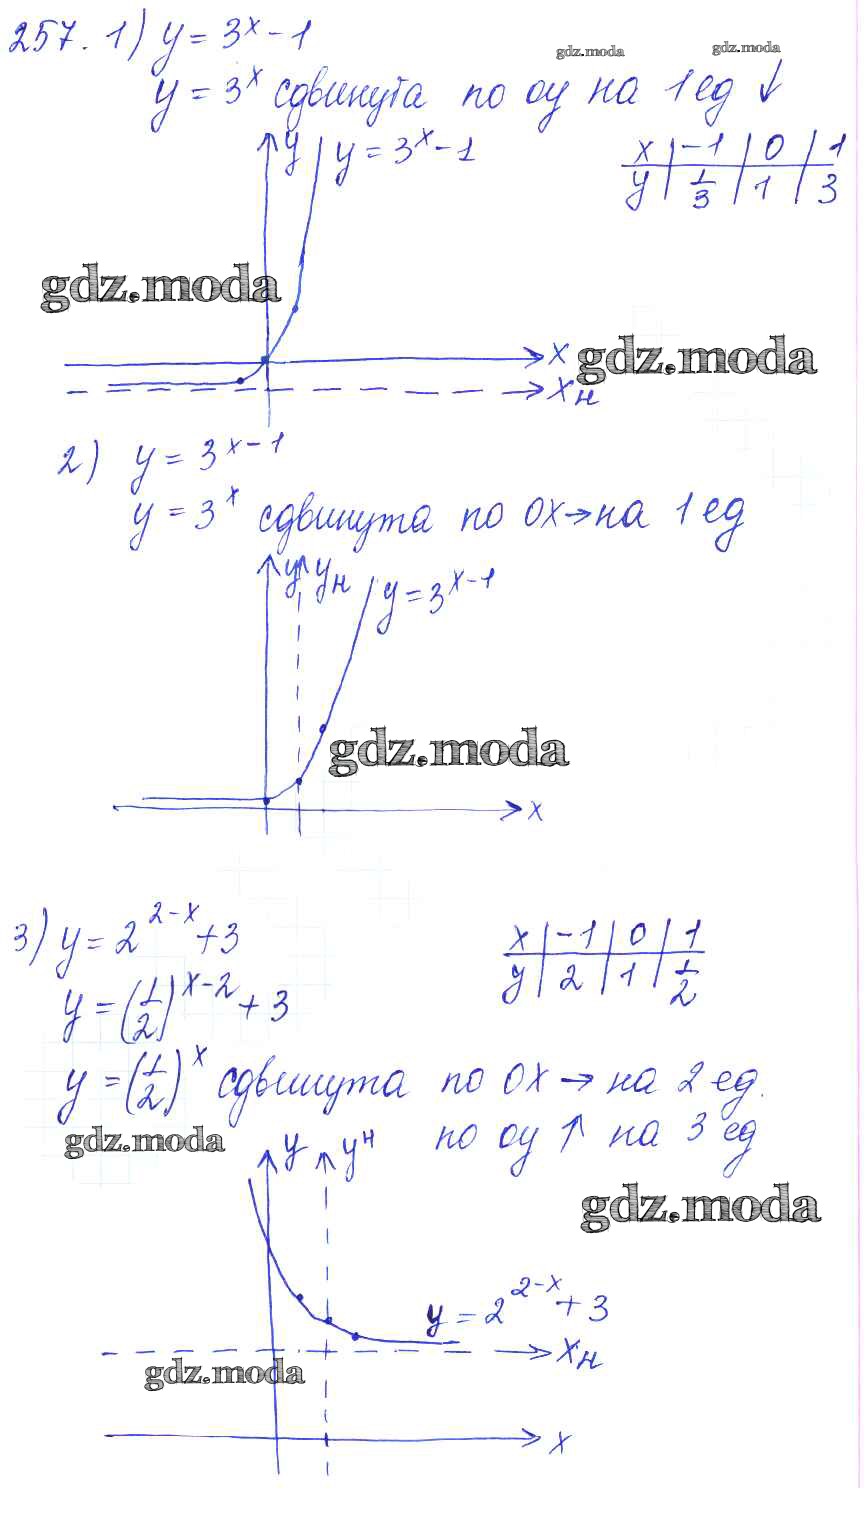 257. 1) y = 3^x - 1
gdz.moda gdz.moda
y = 3^x сдвинута по оу на 1 ед ↓
y y = 3^x - 1
x | -1 | 0 | 1
y | 1/3 | 1 | 3
gdz.moda
x
gdz.moda
xн
2) y = 3^(x-1)
y = 3^x сдвинута по 0X → на 1 ед
y yн y = 3^(x-1)
gdz.moda
x
3) y = 2^(2-x) + 3
x | -1 | 0 | 1
y | 2 | 1 | 1/2
y = (1/2)^(x-2) + 3
y = (1/2)^x сдвинута по 0X → на 2 ед.
gdz.moda
по оу ↑ на 3 ед
y yн
gdz.moda
y = 2^(2-x) + 3
xн
gdz.moda
x